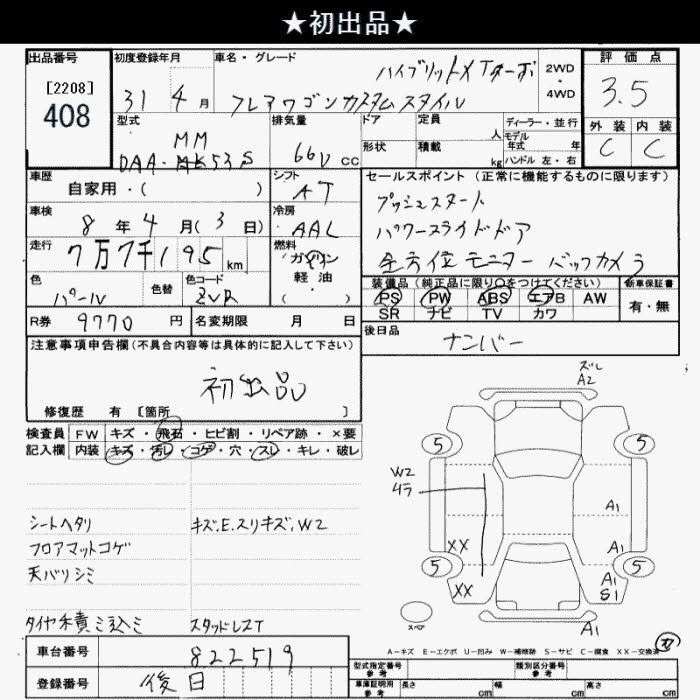 ★初出品★
出品番号
[2208]
408
初度登録年月
31年 4月
車名・グレード
ハイブリットXTターボ
フレアワゴンカスタムスタイル
2WD
・
4WD
評価点
3.5
外装 内装
C C
型式
MM
DAA-MK53S
排気量
660 cc
ドア
形状
定員
人
積載
kg
ディーラー・並行
モデル
年式 年
ハンドル 左・右
車歴
自家用・( )
シフト
AT
車検
8年 4月( 3日)
冷房
AAC
走行
7万7千195 km
燃料
ガソリン
・
軽油
( )
色
パール
色替
色コード
ZVR
R券 9770 円
名変期限 月 日
セールスポイント (正常に機能するものに限ります)
プッシュスタート
パワースライドドア
全方位モニター バックカメラ
装備品 (純正品に限り○をつけてください)
PS PW ABS エアB AW
SR ナビ TV カワ
新車保証書
有・無
後日品
ナンバー
注意事項申告欄 (不具合内容等は具体的に記入して下さい)
初出品
修復歴 有 [箇所 ]
検査員 FW キズ・飛石・ヒビ割・リペア跡・×要
記入欄 内装 キズ・汚レ・コゲ・穴・スレ・キレ・破レ
シートヘタリ
フロアマットコゲ
天バリシミ
タイヤ未積ミ込ミ
キズ、E、スリキズ、W2
スタッドレスT
ズレ
A2
5 5
W2
ムラ
A1
XX A1
5 5
XX A1
S1
スペア
A-キズ E-エクボ U-凹み W-補修跡 S-サビ C-腐食 XX-交換済
車台番号 822519
登録番号 後日
型式指定番号
参考
類別区分番号
参考
車庫証明用
参考
長さ cm 幅 cm 高さ cm